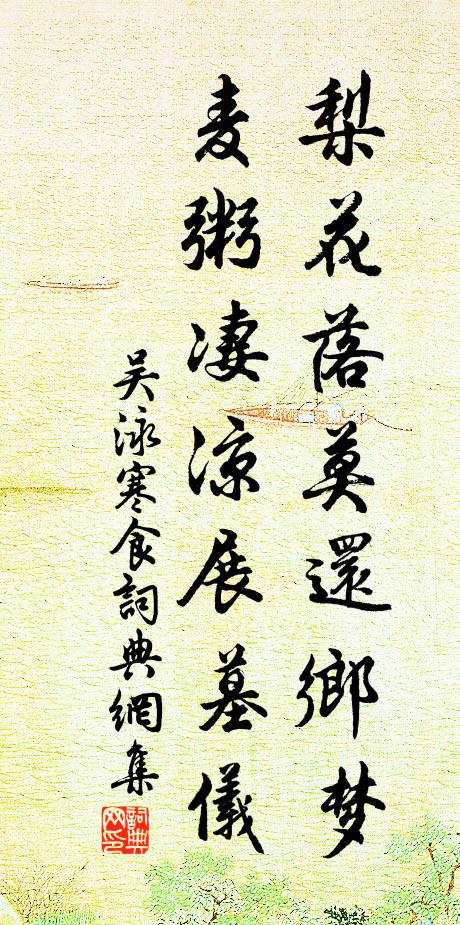 梨花落莫還鄉梦
麦粥凄涼展墓儀
吴泳寒食詞典網集
詞典网印